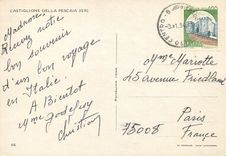 CASTIGLIONE DELLA PESCAIA (GR)
Madame,
Recevez notre
bon souvenir
d'un bon voyage
en Italie.
A Bientôt
Mme Godefroy
Christian
Mme Mariotte
45 avenue Friedland
Paris
75008
France